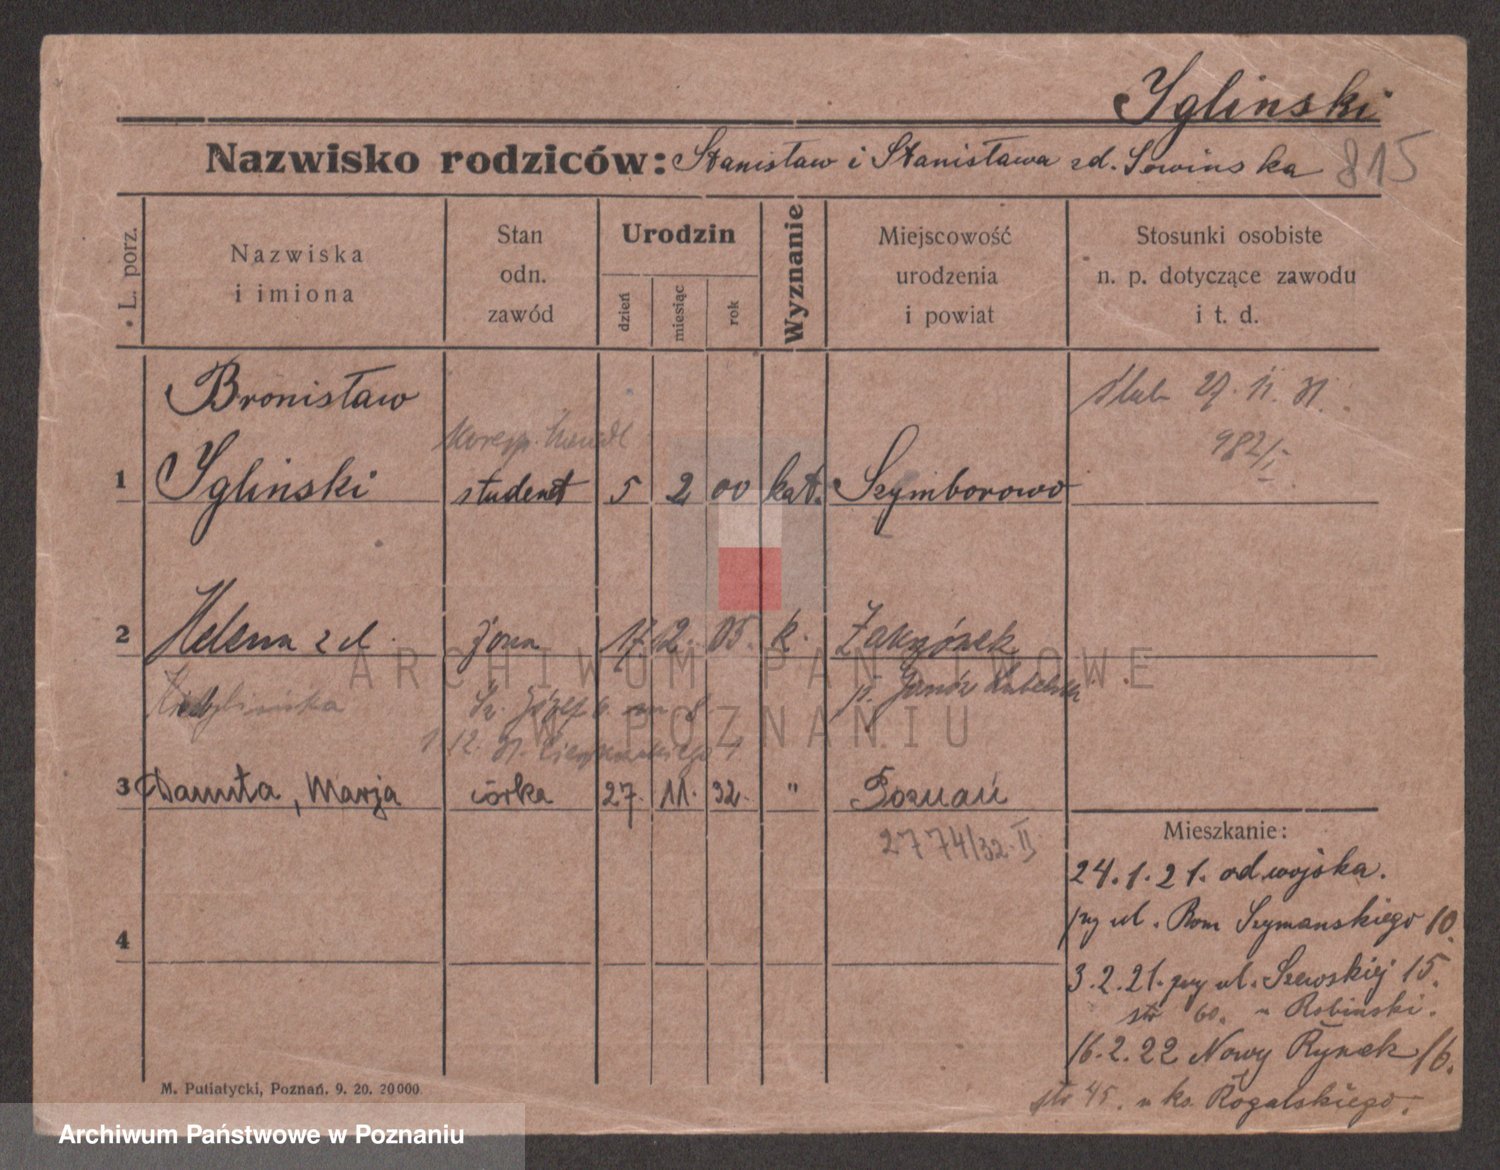 Iglinski
Nazwisko rodziców: Stanisław i Stanisława zd. Sowinska 815
L. porz.
Nazwiska
i imiona
Stan
odn.
zawód
Urodzin
dzień
miesiąc
rok
Wyznanie
Miejscowość
urodzenia
i powiat
Stosunki osobiste
n. p. dotyczące zawodu
i t. d.
Bronisław
koresp. handl
ślub 29. 11. 31.
982/I
1 Iglinski student 5 2 00 kat. Szymborowo
2 Helena zd. żona 17 12. 05. k. Zakrzówek
p. Janów Lubelski
Św. Józef 6. m 8
1 12. 31. Cieszkowskiego 4
3 Danuta, Marja córka 27. 11. 32. " Poznań
2774/32. II
4
Mieszkanie:
24.1.21. od wojska.
przy ul. Rom Szymanskiego 10.
3.2.21. przy ul. Szewskiej 15.
str 60. u Robinski.
16.2.22 Nowy Rynek 16.
str 45. u ks. Rogalskiego.
M. Putiatycki, Poznań. 9. 20. 20000
ARCHIWUM PAŃSTWOWE
W POZNANIU
Archiwum Państwowe w Poznaniu